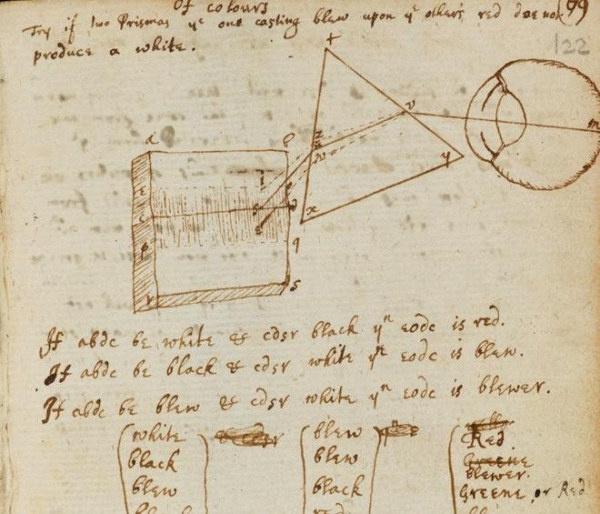 Of colours 99
Try if two Prismas yͤ one casting blew upon yͤ other's red doe not
produce a white.
122
If abdc be white & cdsr black yⁿ eodc is red.
If abdc be black & cdsr white yⁿ eodc is blew.
If abdc be blew & cdsr white yⁿ eodc is blewer.
white blew Red
black blew Greene
blewer.
blew black Greene or Red